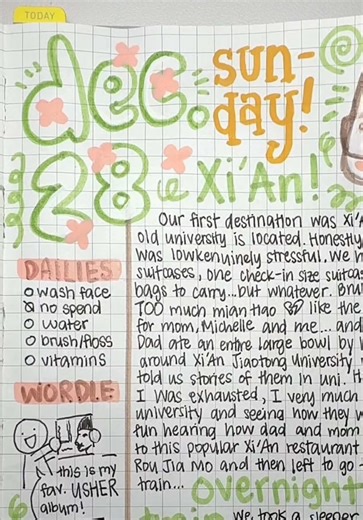 TODAY
dec. sun-
day!
28 Xi'An!
Our first destination was Xi'A
old university is located. Honestly
was lowkenuinely stressful. We h
suitcases, one check-in size suitca
bags to carry...but whatever. Bru
TOO much mian hao like the
for mom, Michelle and me... and
Dad ate an entire large bowl by
around Xi'An Jiaotong University
told us stories of them in uni. H
I was exhausted, I very much
university and seeing how they w
fun hearing how dad and mom
to this popular Xi'An restaurant
Rou Jia Mo and then left to go
train... overnight
train We took a sleeper
DAILIES
wash face
no spend
water
brush/floss
vitamins
WORDLE
this is my
fav. USHER
album!